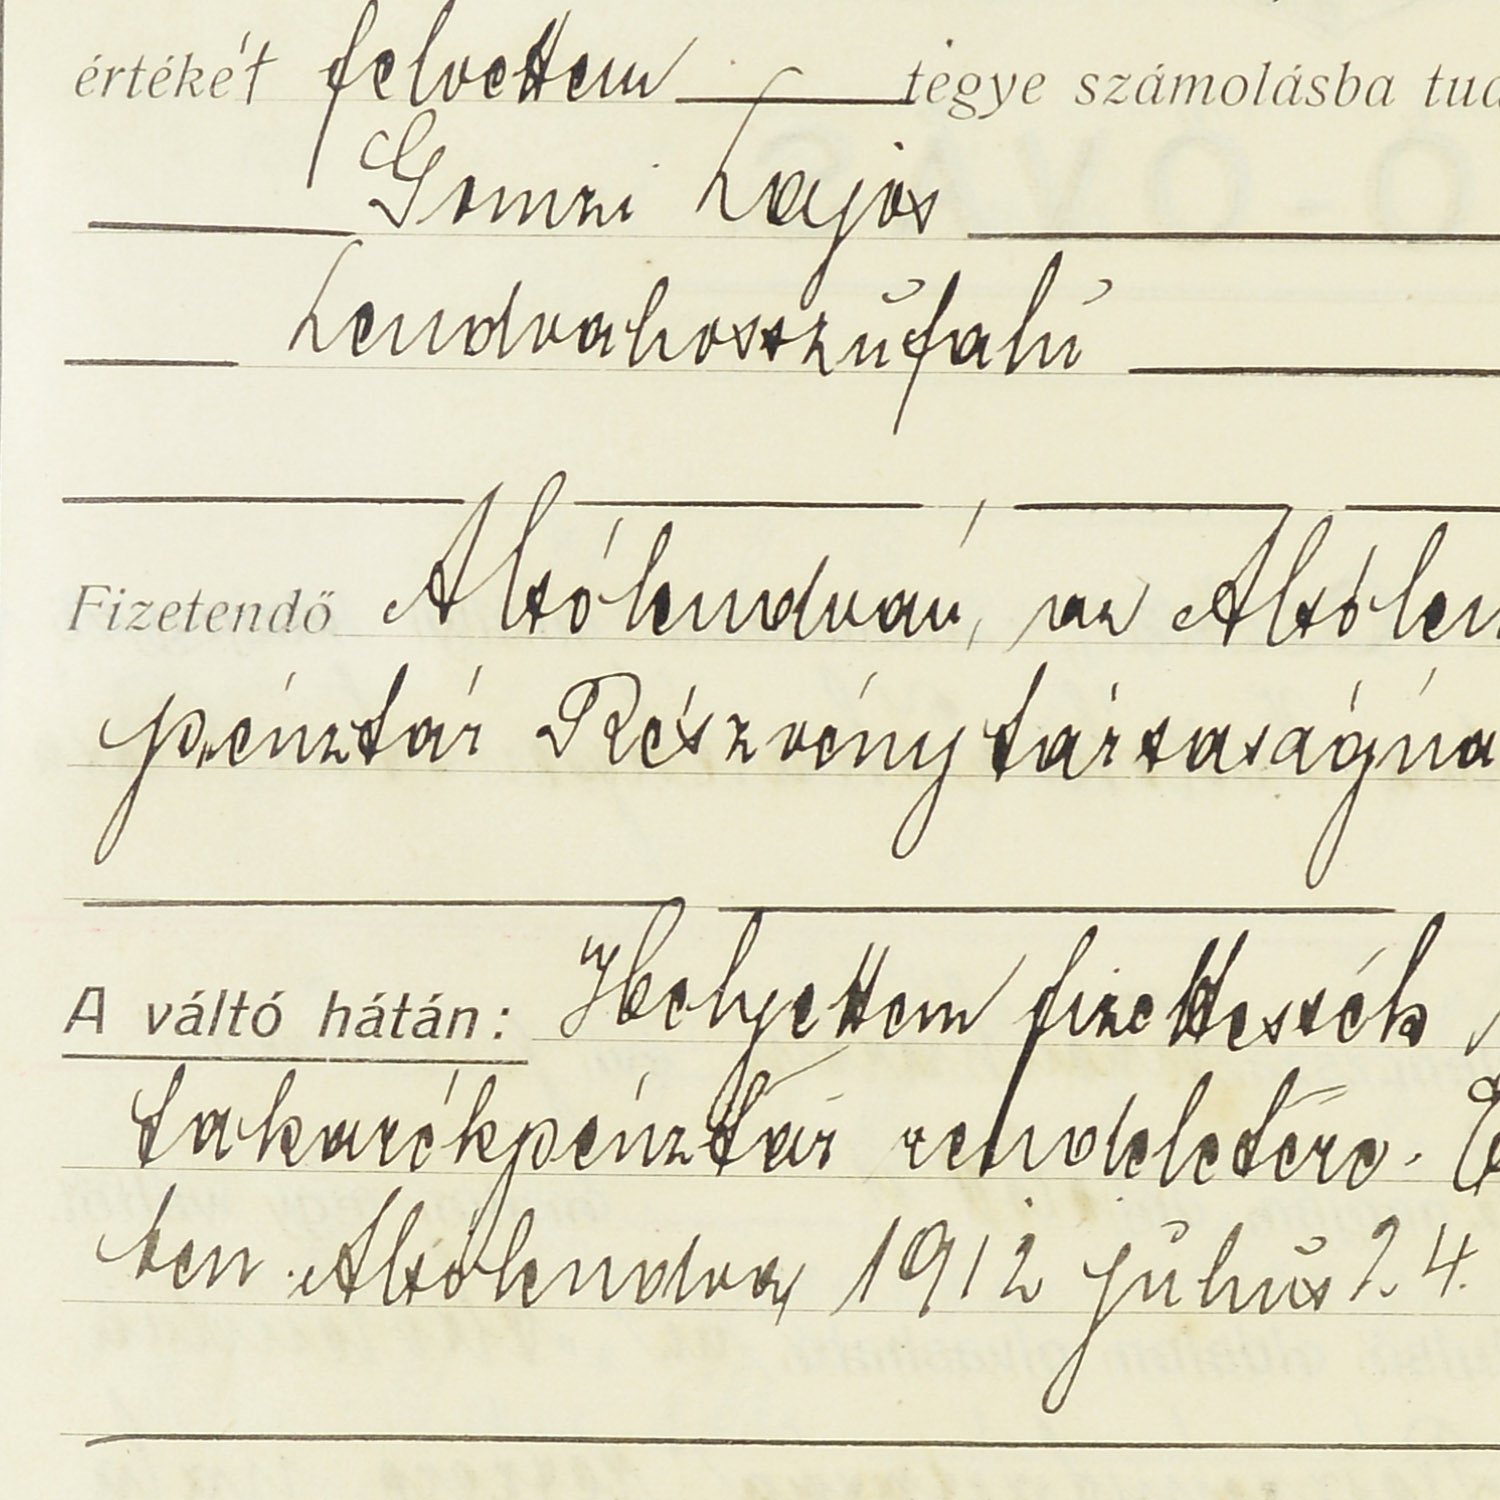 értékét felvettem tegye számolásba tud
Gomzi Lajos
Lendvahosszúfalú
Fizetendő Alsólendván, az Alsólen
pénztár Részvénytársaságna
A váltó hátán: Helyettem fizettessék
takarékpénztár rendeletére.
ten Alsólendva, 1912 július 24.